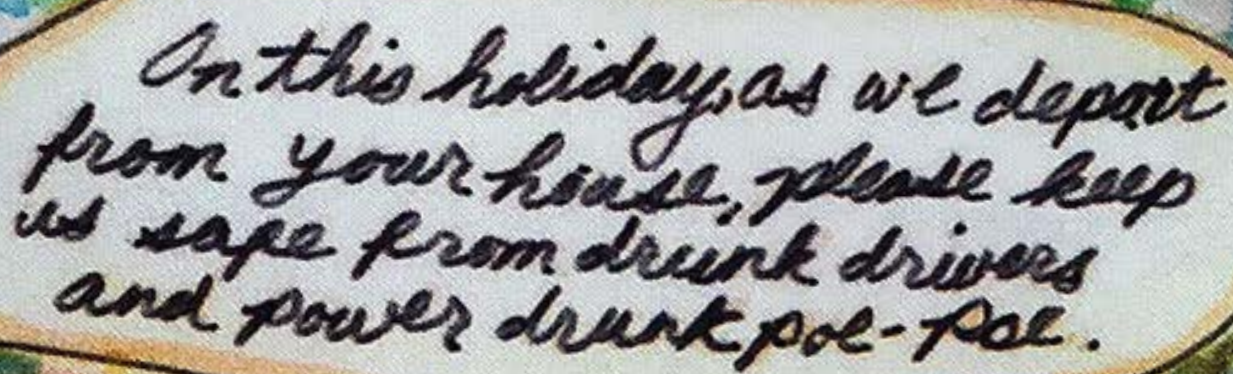 On this holiday, as we depart
from your house, please keep
us safe from drunk drivers
and power drunk poe-Poe.